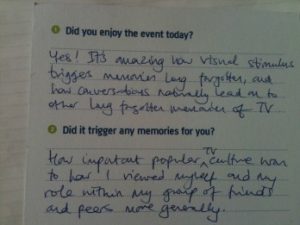 1 Did you enjoy the event today?
Yes! It's amazing how visual stimulus
triggers memories long forgotten, and
how conversations naturally lead on to
other long forgotten memories of TV
2 Did it trigger any memories for you?
How important popular TV culture was
to how I viewed myself and my
role within my group of friends
and peers more generally.